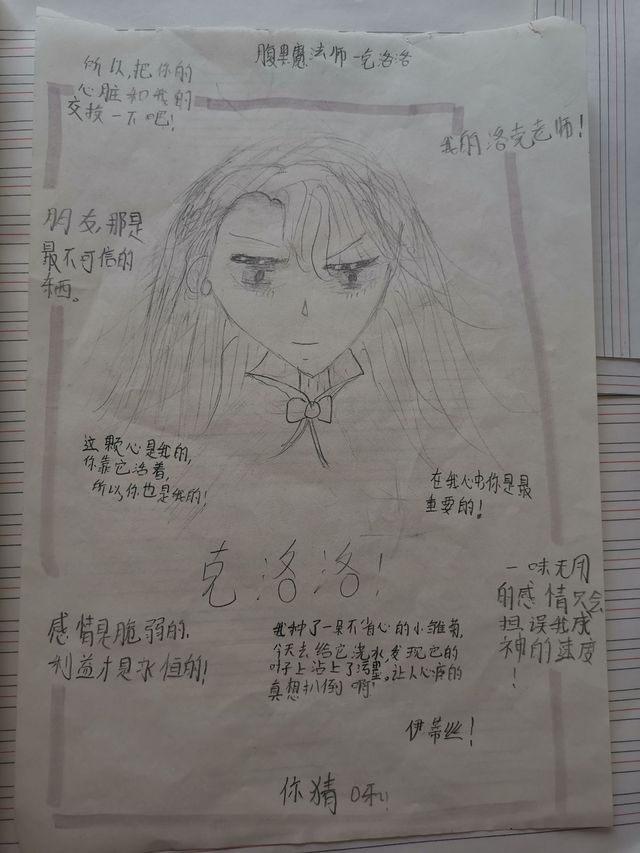 腹黑魔法师-克洛洛
所以,把你的
心脏和我的
交换一下吧!
我的洛克老师!
朋友,那是
最不可信的
东西。
这颗心是我的,
你靠它活着,
所以,你也是我的!
在我心中你是最
重要的!
克洛洛!
一味无用
的感情只会
担误我成
神的速度
!
感情是脆弱的,
利益才是永恒的!
我种了一朵不省心的小雏菊,
今天去给它浇水,发现它的
叶子上沾上了污墨。让人心疼的
真想扒倒啊!
伊蒂丝!
你猜呀!